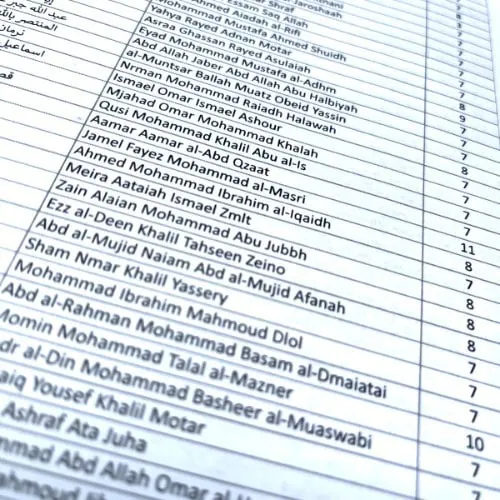 Essam Saq Allah
Ahmed Aladah al-Rifi 7
Mohammad Mustafa Ahmed Shuidh 7
Yahya Rayed Adnan Motar 8
Asraa Ghassan Rayed Asulaiah 9
Eyad Mohammad Mustafa al-Adhm 7
Abd Allah Jaber Abd Allah Abu Halbiyah 7
al-Muntsar Ballah Muatz Obeid Yassin 7
Nrman Mohammad Raiadh Halawah 8
Ismael Omar Ismael Ashour 7
Mjahad Omar Mohammad Khalah 7
Qusi Mohammad Khalil Abu al-Is 7
Aamar Aamar al-Abd Qzaat 7
Jamel Fayez Mohammad al-Masri 11
Ahmed Mohammad Ibrahim al-Iqaidh 8
Meira Aataiah Ismael Zmlt 7
Zain Alaian Mohammad Abu Jubbh 8
Ezz al-Deen Khalil Tahseen Zeino 8
Abd al-Mujid Naiam Abd al-Mujid Afanah 8
Sham Nmar Khalil Yassery 7
Mohammad Ibrahim Mahmoud Dlol 7
Abd al-Rahman Mohammad Basam al-Dmaiatai 7
Momin Mohammad Talal al-Mazner 10
dr al-Din Mohammad Basheer al-Muaswabi 7
aiq Yousef Khalil Motar 7
Ashraf Ata Juha
mmad Abd Allah Omar